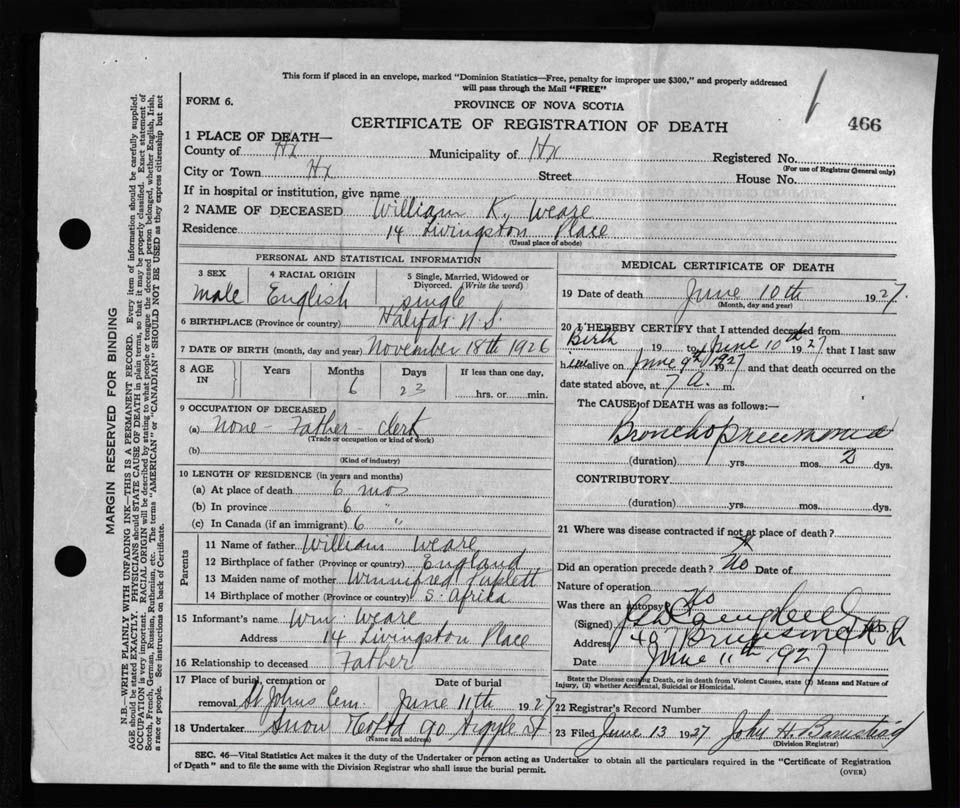 This form if placed in an envelope, marked "Dominion Statistics—Free, penalty for improper use $300," and properly addressed
will pass through the Mail "FREE"
FORM 6.
PROVINCE OF NOVA SCOTIA
CERTIFICATE OF REGISTRATION OF DEATH
466
1 PLACE OF DEATH—
County of Hx Municipality of Hx Registered No.
(For use of Registrar General only)
City or Town Hx Street House No.
If in hospital or institution, give name
2 NAME OF DECEASED William K, Weare
Residence 14 Livingston Place
(Usual place of abode)
PERSONAL AND STATISTICAL INFORMATION
3 SEX 4 RACIAL ORIGIN 5 Single, Married, Widowed or Divorced. (Write the word)
male English single
6 BIRTHPLACE (Province or country) Halifax N.S.
7 DATE OF BIRTH (month, day and year) November 18th 1926
8 AGE IN Years Months Days If less than one day,
6 23 hrs. or min.
9 OCCUPATION OF DECEASED
(a) None - Father - clerk
(Trade or occupation or kind of work)
(b)
(Kind of industry)
10 LENGTH OF RESIDENCE (in years and months)
(a) At place of death 6 mos
(b) In province 6 "
(c) In Canada (if an immigrant) 6 "
Parents
11 Name of father William Weare
12 Birthplace of father (Province or country) England
13 Maiden name of mother Winnifred
14 Birthplace of mother (Province or country) S. Afrika
15 Informant's name Wm. Weare
Address 14 Livingston Place
16 Relationship to deceased Father
17 Place of burial, cremation or removal St Johns Cem. Date of burial June 11th 1927
18 Undertaker Snow & Co Ltd 90 Argyle St
(Name and address)
MEDICAL CERTIFICATE OF DEATH
19 Date of death June 10th 1927.
(Month, day and year)
20 I HEREBY CERTIFY that I attended deceased from
Birth 19 to June 10th 1927 that I last saw
him alive on June 9th 1927 and that death occurred on the
date stated above, at 7 a. m.
The CAUSE of DEATH was as follows:—
Broncho pneumonia
(duration) yrs. mos. 2 dys.
CONTRIBUTORY
(duration) yrs. mos. dys.
21 Where was disease contracted if not at place of death?
Did an operation precede death? No Date of
Nature of operation
Was there an autopsy? No
(Signed) M.D.
Address 407 Brunswick St
Date June 11th 1927
State the Disease causing Death, or in death from Violent Causes, state (1) Means and Nature of
Injury, (2) whether Accidental, Suicidal or Homicidal.
22 Registrar's Record Number
23 Filed June 13 1927 John H. Barnstead
(Division Registrar)
SEC. 46—Vital Statistics Act makes it the duty of the Undertaker or person acting as Undertaker to obtain all the particulars required in the "Certificate of Registration
of Death" and to file the same with the Division Registrar who shall issue the burial permit.
(OVER)
MARGIN RESERVED FOR BINDING
N.B.—WRITE PLAINLY WITH UNFADING INK—THIS IS A PERMANENT RECORD. Every item of information should be carefully supplied.
AGE should be stated EXACTLY. PHYSICIANS should STATE CAUSE OF DEATH in plain terms, so that it may be properly classified. Exact statement of
OCCUPATION is very important. RACIAL ORIGIN will be described by stating to what people or tongue the deceased person belonged, whether English, Irish,
Scotch, French, German, Russian, Ruthenian, etc. The terms "AMERICAN" or "CANADIAN" SHOULD NOT BE USED as they express citizenship but not
a race or people. See instructions on back of Certificate.